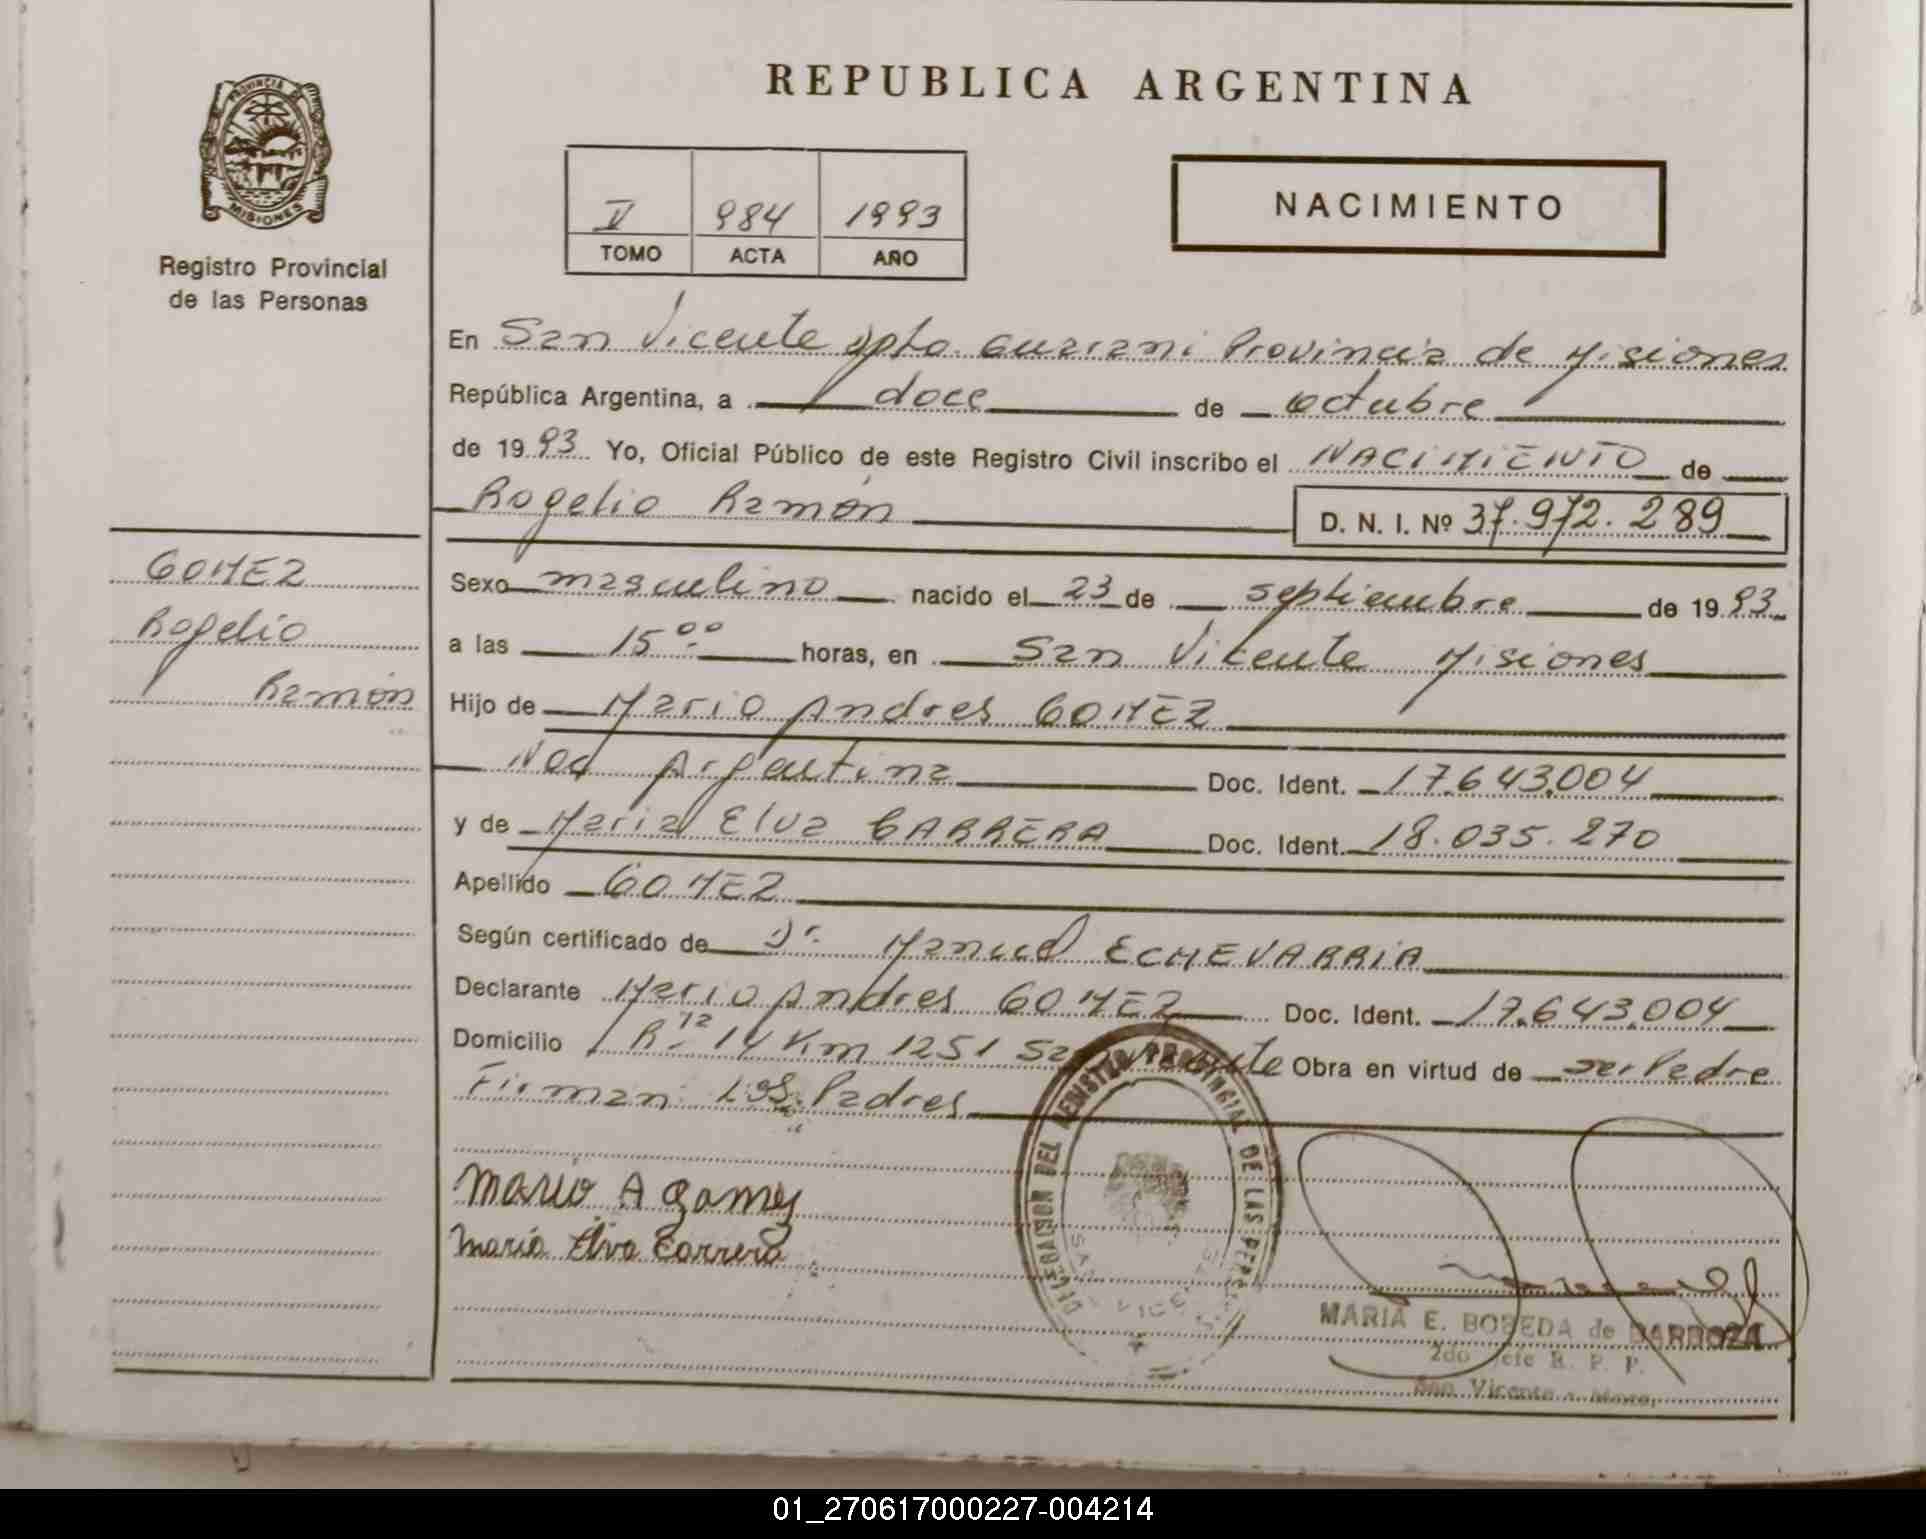 REPUBLICA ARGENTINA
PROVINCIA DE
MISIONES
Registro Provincial
de las Personas
V 984 1993
TOMO ACTA AÑO
NACIMIENTO
En San Vicente Dpto. Guarani Provincia de Misiones
República Argentina, a doce de octubre
de 1993 Yo, Oficial Público de este Registro Civil inscribo el NACIMIENTO de
Rogelio Ramón D. N. I. Nº 37.972.289
GOMEZ
Rogelio
Ramón
Sexo masculino nacido el 23 de septiembre de 1993
a las 15:00 horas, en San Vicente Misiones
Hijo de Mario Andres GOMEZ
Nac Argentina Doc. Ident. 17.643.004
y de Maria Elva CARRERA Doc. Ident. 18.035.270
Apellido GOMEZ
Según certificado de Dr. Manuel ECHEVARRIA
Declarante Mario Andres GOMEZ Doc. Ident. 17.643.004
Domicilio Rta 14 Km 1251 San Vicente Obra en virtud de ser Padre
Firman Los Padres
Mario A gomez
Maria Elva Carrera
DELEGACION DEL REGISTRO PROVINCIAL DE LAS PERS
SAN VICENTE
MARIA E. BOBEDA de BARROZA
2do Jefe R. P. P.
San Vicente - Mnes.
01_270617000227-004214